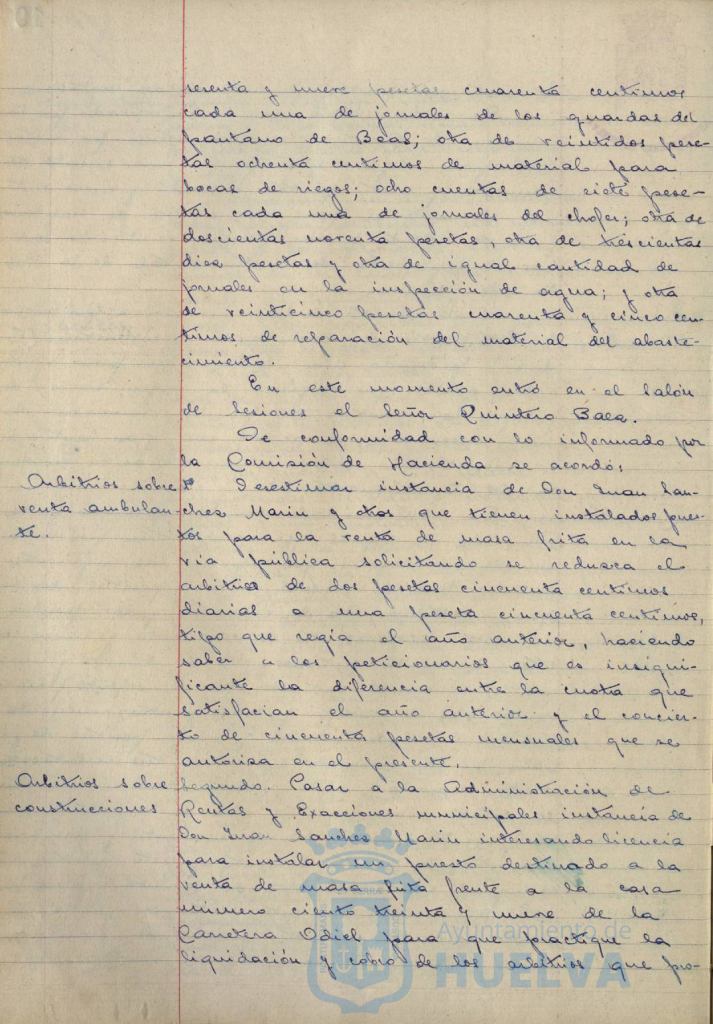 senta y nueve pesetas cuarenta centimos
cada una de jornales de los guardas del
pantano de Beas; otra de veintidos pese-
tas ochenta centimos de material para
bocas de riegos; ocho cuentas de siete pese-
tas cada una de jornales del chofer; otra de
doscientas noventa pesetas, otra de trescientas
diez pesetas y otra de igual cantidad de
jornales en la inspección de agua; y otra
de veinticinco pesetas cuarenta y cinco cen-
timos de reparación del material del abaste-
cimiento.
En este momento entró en el Salón
de Sesiones el Señor Quintero Baez.
De conformidad con lo informado por
la Comisión de Hacienda se acordó:
Arbitrios sobre
venta ambulan-
te.
1º Desestimar instancia de Don Juan San-
chez Marin y otros que tienen instalados pues-
tos para la venta de masa frita en la
via pública solicitando se reduzca el
arbitrio de dos pesetas cincuenta centimos
diarias a una peseta cincuenta centimos,
tipo que regia el año anterior, haciendo
saber a los peticionarios que es insigni-
ficante la diferencia entre la cuota que
satisfacian el año anterior y el concier-
to de cincuenta pesetas mensuales que se
autoriza en el presente.
Arbitrios sobre
construcciones
Segundo. Pasar a la Administración de
Rentas y Exacciones municipales instancia de
Don Juan Sanchez Marin interesando licencia
para instalar un puesto destinado a la
venta de masa frita frente a la casa
número ciento treinta y nueve de la
Carretera Odiel para que practique la
liquidación y cobro de los arbitrios que pro-
Ayuntamiento de
HUELVA